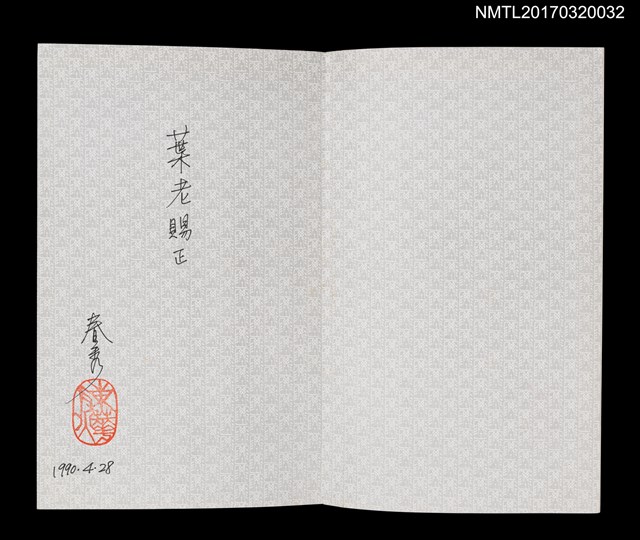 NMTL20170320032
葉老賜正
春秀
1990.4.28